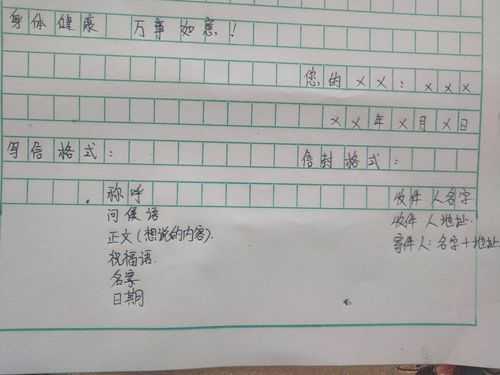 身体健康 万事如意!
您的××:×××
××年×月×日
写信格式: 信封格式:
称呼 收件人名字
问候语 收件人地址.
正文(想说的内容). 寄件人:名字+地址
祝福语.
名字
日期